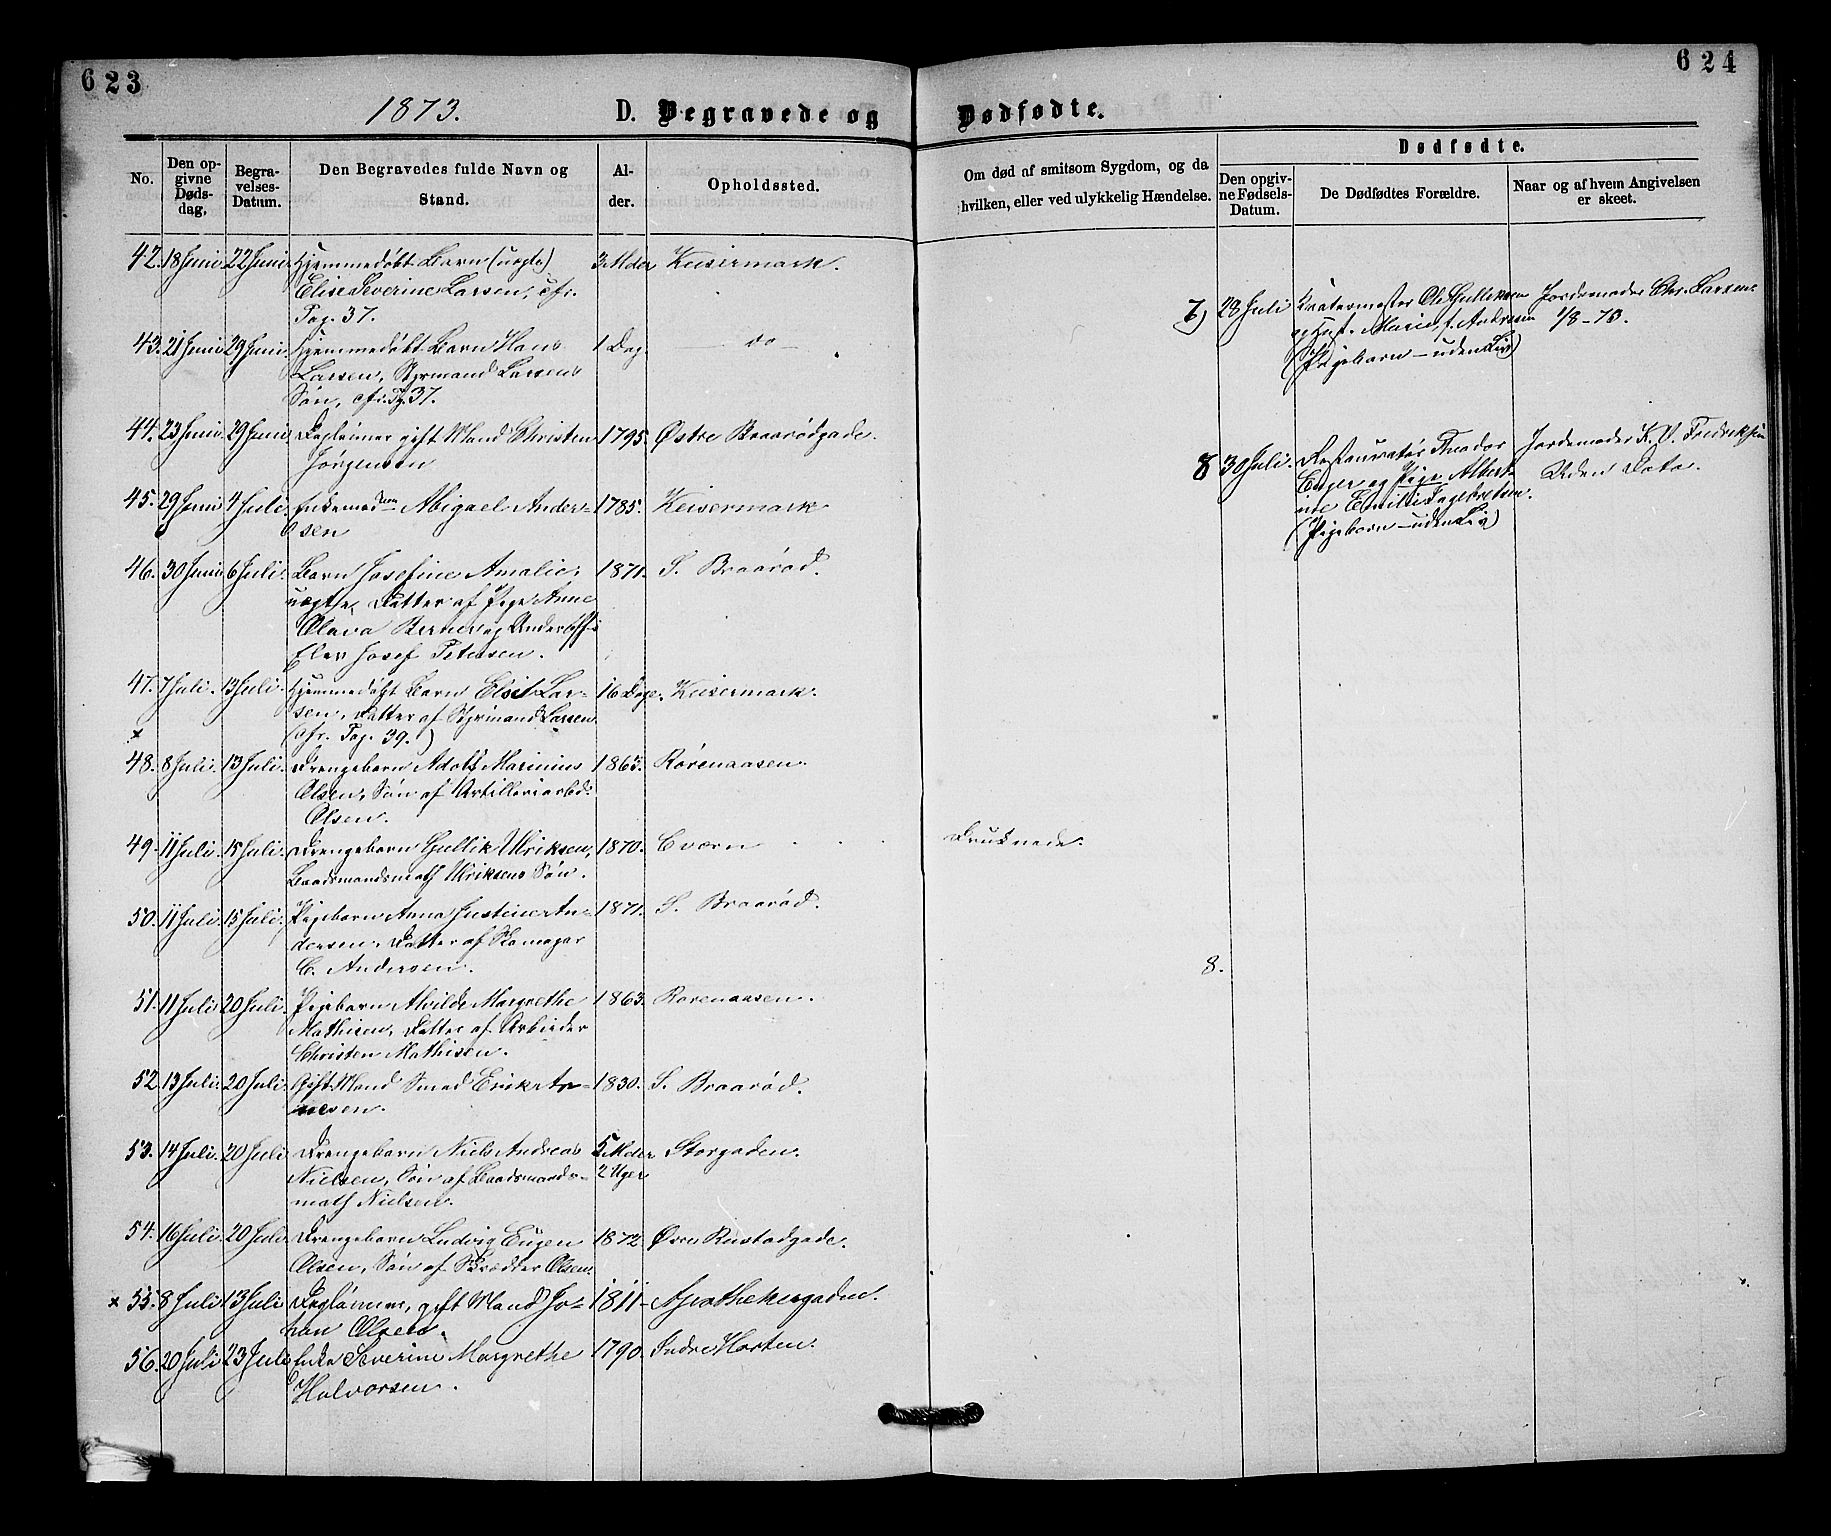 623
624
1873.
D. Begravede og
Dødfødte.
No.
Den opgivne Dødsdag,
Begravelses-Datum.
Den Begravedes fulde Navn og Stand.
Alder.
Opholdssted.
Om død af smitsom Sygdom, og da hvilken, eller ved ulykkelig Hændelse.
Dødfødte.
Den opgivne Fødsels-Datum.
De Dødfødtes Forældre.
Naar og af hvem Angivelsen er skeet.
42. 18 Juni 22 Juni Hjemmedøbt Barn (uægte) 3 Mdr Keisermark.
Elise Severine Larsen, cfr.
Pag. 37.
43. 21 Juni 29 Juni Hjemmedøbt Barn Hans 1 Dag. — do —
Larsen, Styrmand Larsens
Søn, cfr. Pg. 37.
44. 23 Juni 29 Juni Dagleiner gift Mand Christen 1795. Østre Braarødgade.
Jørgensen
45. 29 Juni 4 Juli. Abigael Ander- 1785. Keisermark
sen
46. 30 Juni 6 Juli. Barn Josefine Amalie, 1871. S. Braarød.
uægte, Datter af Pige Anne
Olava og Underoff.
Elev Josef Petersen.
47. 7 Juli. 13 Juli. Hjemmedøbt Barn Lar- 16 Dage. Keisermark.
sen, Datter af Styrmand Larsen
x (cfr. Pag. 39.)
48. 8 Juli. 13 Juli. Drengebarn Adolf Marinius 1863. Rørenaasen.
Olsen, Søn af Artilleriarbd.
Olsen.
49. 11 Juli. 15 Juli. Drengebarn Gullik Ulriksen, 1870. Cværn Druknede.
Baadsmandsmath Ulriksens Søn.
50. 11 Juli. 15 Juli. Pigebarn Anna Justine An- 1871. S. Braarød.
dersen, Datter af Skomager
C. Andersen.
8.
51. 11 Juli 20 Juli. Pigebarn Alvilde Margrethe 1863. Rørenaasen.
Mathisen, Datter af Arbeider
Christen Mathisen.
52. 13 Juli. 20 Juli. Gift Mand Smed Erik 1830. S. Braarød.
53. 14 Juli. 20 Juli Drengebarn Niels Andreas 5 Mdr Storgaden.
Nielsen, Søn af Baadsmands- 2 Uger
math Nielsen.
54. 16 Juli. 20 Juli Drengebarn Ludvig Eugen 1872 Rustadgade.
Olsen, Søn af Skrædder Olsen.
x 55. 8 Juli 13 Juli Daglønner, gift Mand Jo- 1811 Apothekergaden.
han Olsen.
56. 20 Juli 23 Juli Enke Severine Margrethe 1790. Indre Horten.
Halvorsen.
7) 28 Juli Kvatermester Ole Gulliksen Jordemoder Chr. Larsen
og Hust. Marie, f. Andersen 1/8-73.
(Pigebarn — uden Liv)
8 30 Juli. Restauratør Theodor Jordemoder K. O. Fredriksen
Enger og Pige Albert- Uden Dato.
ine Emilie Ingebretsen.
(Pigebarn — uden Liv)